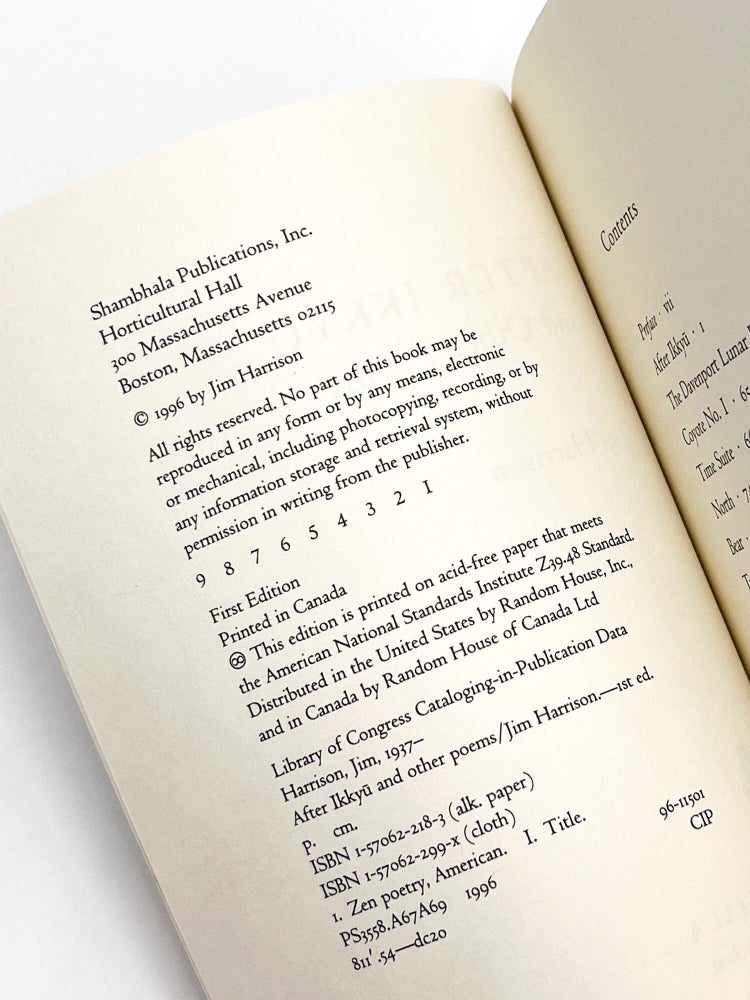 Shambhala Publications, Inc.
Horticultural Hall
300 Massachusetts Avenue
Boston, Massachusetts 02115
© 1996 by Jim Harrison
All rights reserved. No part of this book may be
reproduced in any form or by any means, electronic
or mechanical, including photocopying, recording, or by
any information storage and retrieval system, without
permission in writing from the publisher.
9 8 7 6 5 4 3 2 1
First Edition
Printed in Canada
♾ This edition is printed on acid-free paper that meets
the American National Standards Institute Z39.48 Standard.
Distributed in the United States by Random House, Inc.,
and in Canada by Random House of Canada Ltd
Library of Congress Cataloging-in-Publication Data
Harrison, Jim, 1937–
After Ikkyū and other poems/Jim Harrison.—1st ed.
p. cm.
ISBN 1-57062-218-3 (alk. paper)
ISBN 1-57062-299-x (cloth)
1. Zen poetry, American. I. Title.
PS3558.A67A69 1996 96-11501
811'.54—dc20 CIP
Contents
Preface · vii
After Ikkyū · 1
The Davenport Lunar
Coyote No. 1 · 65
Time Suite ·
North ·
Bear ·